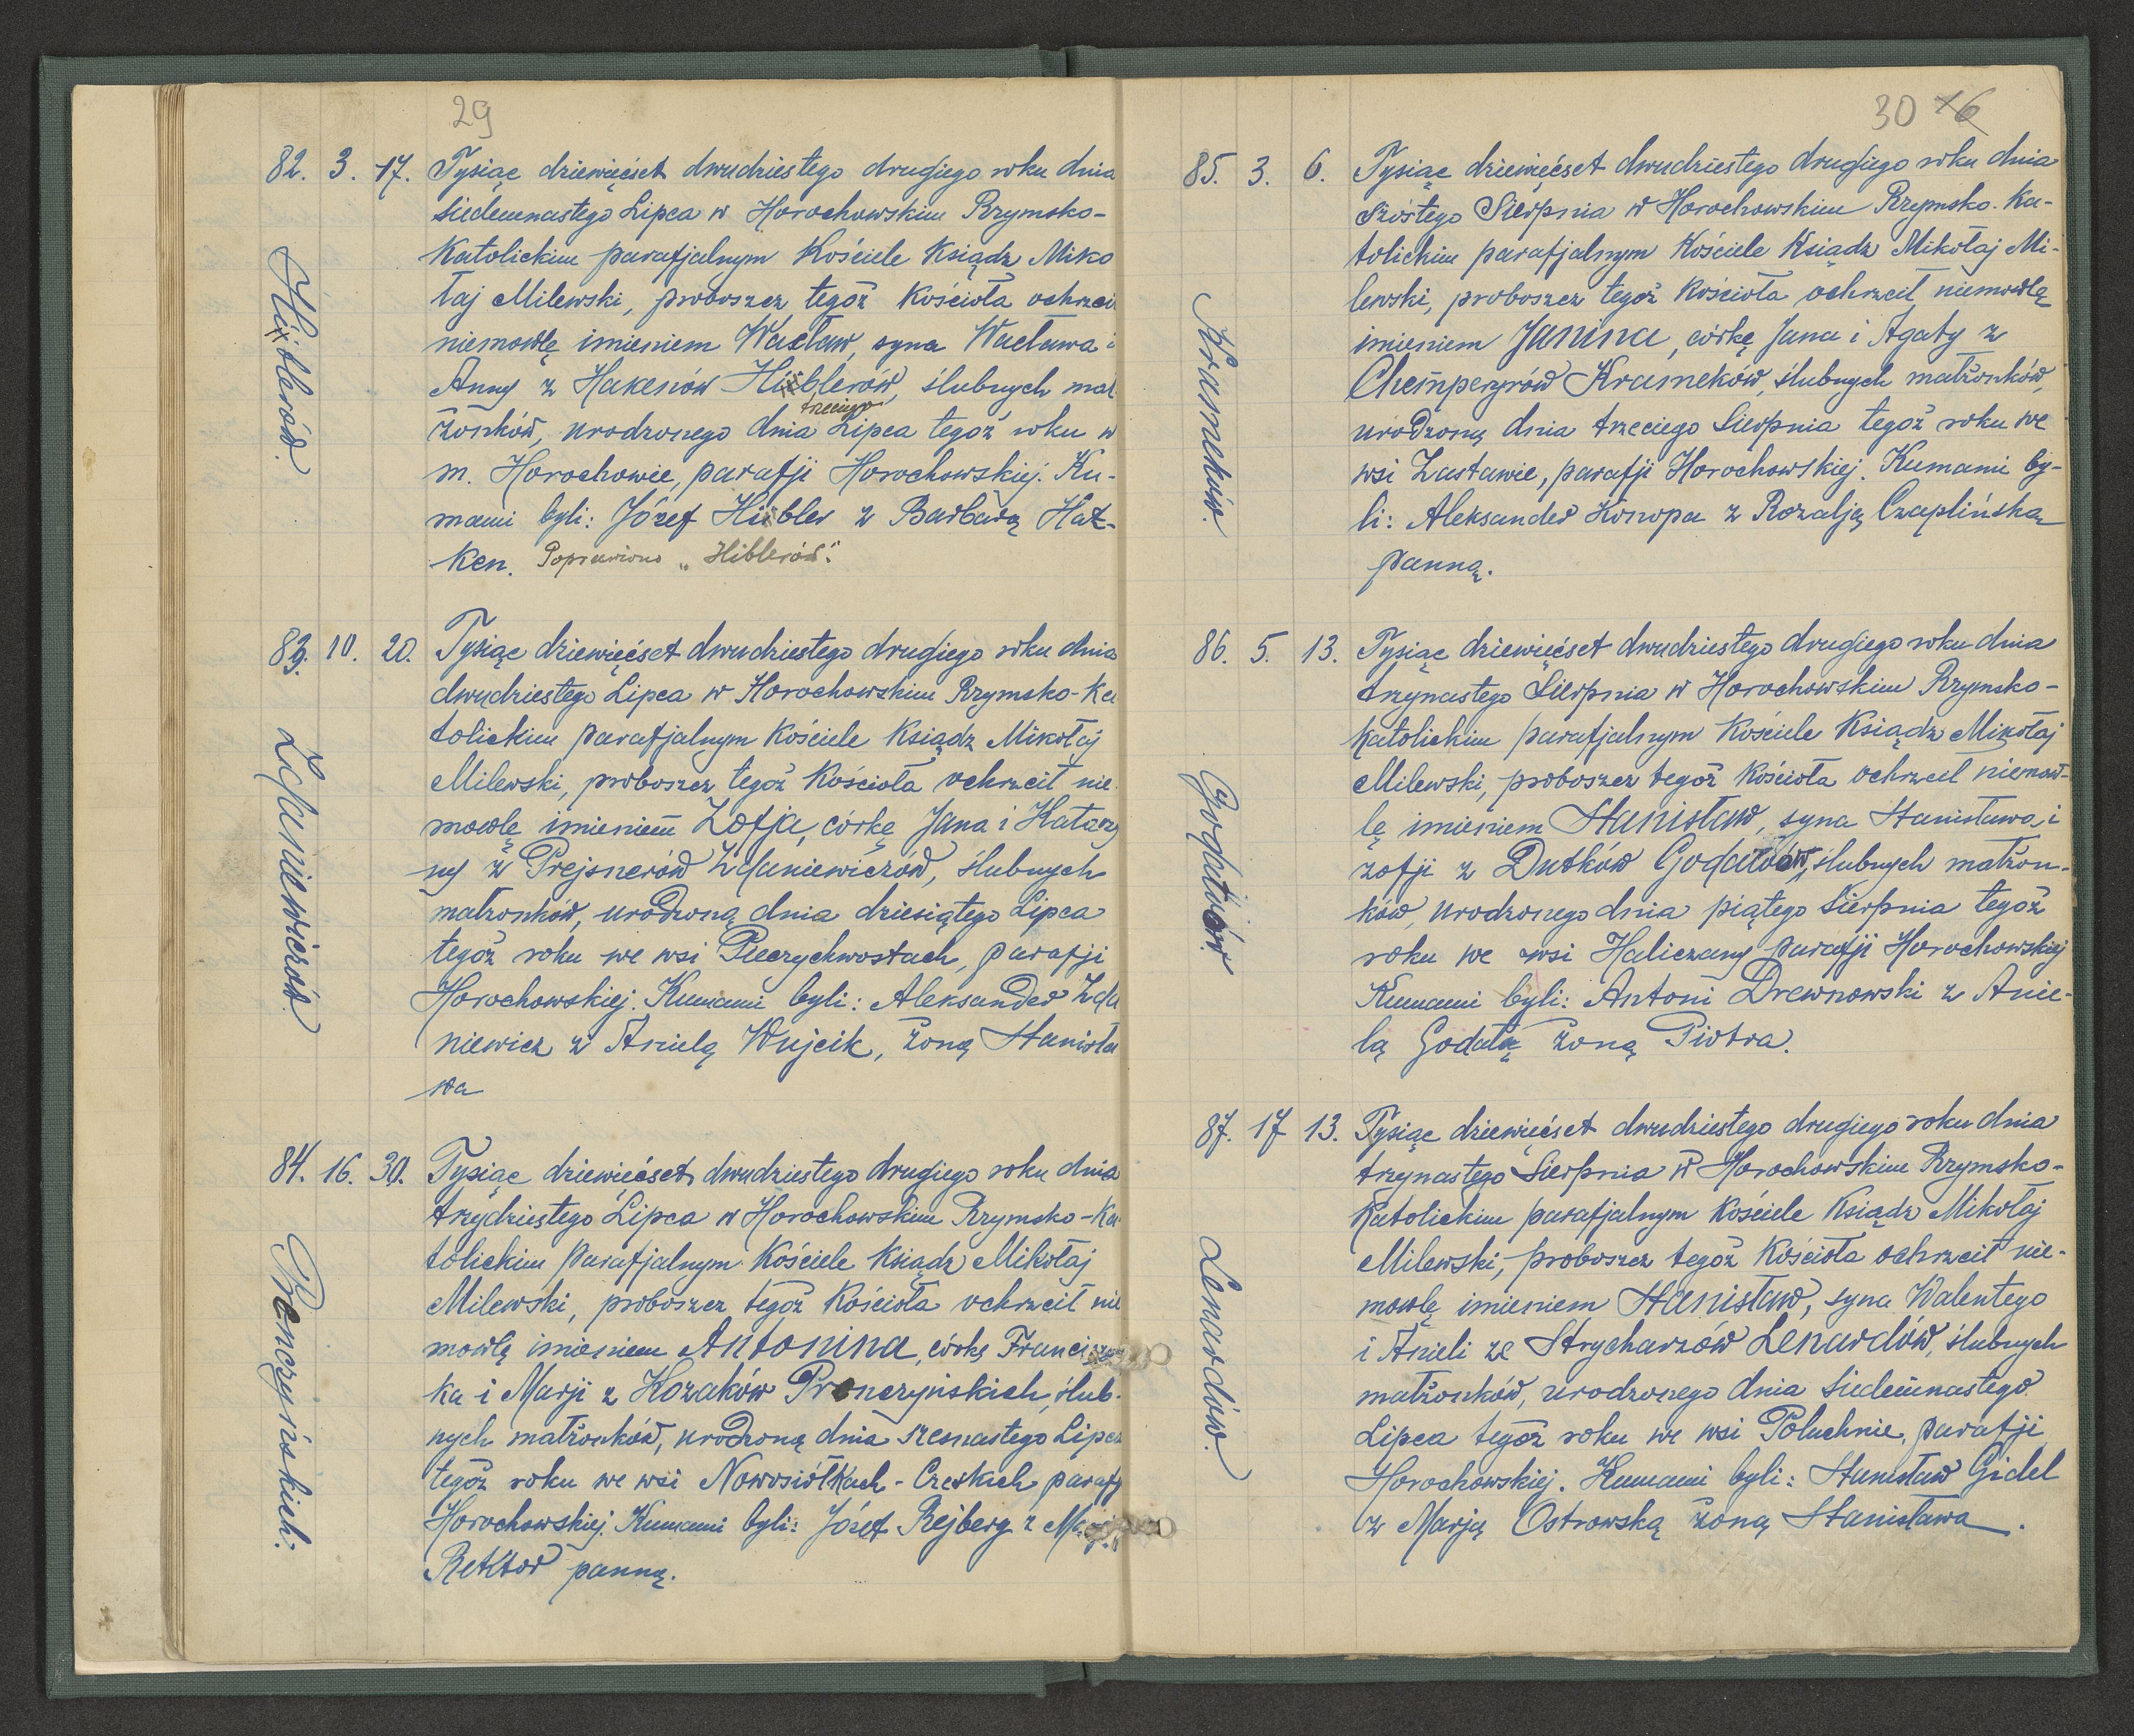 29
82. 3. 17. Tysiąc dziewięćset dwudziestego drugiego roku dnia
siedemnastego Lipca w Horochowskim Rzymsko-
Katolickim parafjalnym Kościele Ksiądz Miko
łaj Milewski, proboszcz tegoż Kościoła ochrzci
niemowlę imieniem Wacław, syna Wacława i
Anny z Hakenów Hiblerów, ślubnych mał
żonków, urodzonego dnia trzeciego Lipca tegoż roku w
m. Horochowie, parafji Horochowskiej. Ku-
mami byli: Józef Hibler z Barbarą Hat-
ken. Poprawiono „Hiblerów".
Hiblerów.
83. 10. 20. Tysiąc dziewięćset dwudziestego drugiego roku dnia
dwudziestego Lipca w Horochowskim Rzymsko-Ka
tolickim parafjalnym Kościele Ksiądz Mikołaj
Milewski, proboszcz tegoż Kościoła ochrzcił nie
mowlę imieniem Zofja, córkę Jana i Katarzy
ny z Prejsnerów Zdaniewiczów, ślubnych
małżonków, urodzoną dnia dziesiątego Lipca
tegoż roku we wsi Pieczychwostach, parafji
Horochowskiej. Kumami byli: Aleksander Zda
niewicz z Anielą Wujcik, żoną Stanisła
wa
Zdaniewiczów.
84. 16. 30. Tysiąc dziewięćset dwudziestego drugiego roku dnia
trzydziestego Lipca w Horochowskim Rzymsko-Ka
tolickim parafjalnym Kościele Ksiądz Mikołaj
Milewski, proboszcz tegoż Kościoła ochrzcił nie
mowlę imieniem Antonina, córkę Francisz
ka i Marji z Kozaków Prenczyńskich, ślub
nych małżonków, urodzoną dnia szesnastego Lipca
tegoż roku we wsi Nowosiółkach-Czeskich parafj
Horochowskiej. Kumami byli: Józef Rejberg z
Rektor panną.
Prenczyńskich.
30 16
85. 3. 6. Tysiąc dziewięćset dwudziestego drugiego roku dnia
szóstego Sierpnia w Horochowskim Rzymsko-Ka-
tolickim parafjalnym Kościele Ksiądz Mikołaj Mi-
lewski, proboszcz tegoż Kościoła ochrzcił niemowlę
imieniem Janina, córkę Jana i Agaty z
Chemperyrów Krameków, ślubnych małżonków,
urodzoną dnia trzeciego Sierpnia tegoż roku we
wsi Zastawie, parafji Horochowskiej. Kumami by-
li: Aleksander Konopa z Rozalją Czaplińską
panną.
Krameków.
86. 5. 13. Tysiąc dziewięćset dwudziestego drugiego roku dnia
trzynastego Sierpnia w Horochowskim Rzymsko-
Katolickim parafjalnym Kościele Ksiądz Mikołaj
Milewski, proboszcz tegoż Kościoła ochrzcił niemow-
lę imieniem Stanisław, syna Stanisława i
Zofji z Dutków Godałów, ślubnych małżon-
ków, urodzonego dnia piątego Sierpnia tegoż
roku we wsi Haliczany parafji Horochowskiej
Kumami byli: Antoni Drewnowski z Anie-
lą Godałą żoną Piotra.
Godałów
87. 17 13. Tysiąc dziewięćset dwudziestego drugiego roku dnia
trzynastego Sierpnia w Horochowskim Rzymsko-
Katolickim parafjalnym Kościele Ksiądz Mikołaj
Milewski, proboszcz tegoż Kościoła ochrzcił nie-
mowlę imieniem Stanisław, syna Walentego
i Anieli ze Strycharzów Lenardów, ślubnych
małżonków, urodzonego dnia siedemnastego
Lipca tegoż roku we wsi Poluchnie, parafji
Horochowskiej. Kumami byli: Stanisław Gidel
z Marją Ostrowską żoną Stanisława.
Lenardów.